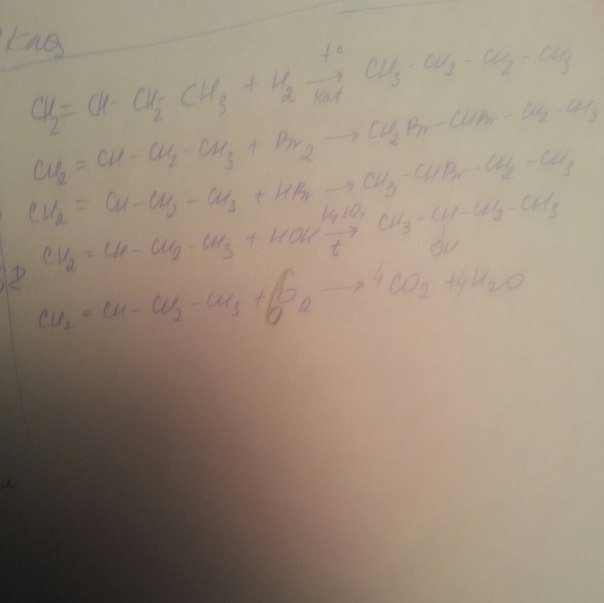 CH₂= CH- CH₂- CH₃ + H₂ t° ⟶ kat CH₃ - CH₂ - CH₂ - CH₃
CH₂ = CH - CH₂ - CH₃ + Br₂ ⟶ CH₂Br - CHBr - CH₂ - CH₃
CH₂ = CH - CH₂ - CH₃ + HBr ⟶ CH₃ - CHBr - CH₂ - CH₃
CH₂ = CH - CH₂ - CH₃ + HOH H₂SO₄ ⟶ t CH₃ - CH - CH₂ - CH₃
OH
CH₂ = CH - CH₂ - CH₃ + 6O₂ ⟶ 4CO₂ + 4H₂O